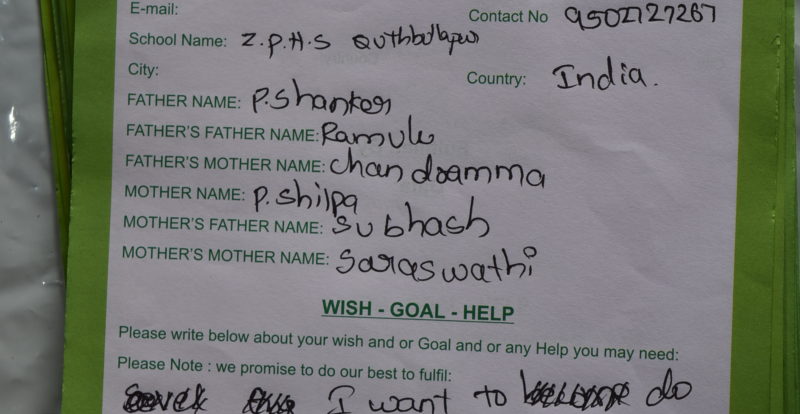 E-mail: Contact No 9502727267
School Name: Z.P.H.S Quthbullapur
City: Country: India.
FATHER NAME: P. Shanker
FATHER'S FATHER NAME: Ramulu
FATHER'S MOTHER NAME: Chandramma
MOTHER NAME: P. Shilpa
MOTHER'S FATHER NAME: Subhash
MOTHER'S MOTHER NAME: Saraswathi
WISH - GOAL - HELP
Please write below about your wish and or Goal and or any Help you may need:
Please Note : we promise to do our best to fulfil:
I want to do